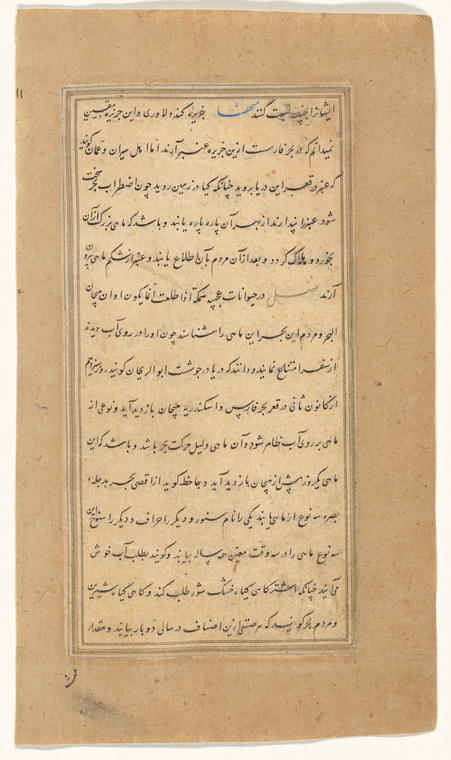 ایشانرا بچنین نسبت کنند منها جزیره کنده لاوری و این جزیره بیقین
نمیدانم که در بحر فارست ازین جزیره عنبر آرند اما اهل سیران و عمان کویند
که عنبر در قعر این دریا بروید چنانکه کیا در زمین روید چون اضطراب بحر سخت
شود عنبر را بیندازند از بهر آن پاره پاره یابند و باشد که ماهی بزرک ازان
بخورد و هلاک کردد و بعد از آن مردم بآن اطلاع یابند و عنبر از شکم ماهی بیرون
آرند فصل در حیوانات عجیبه سمکة اذا طلعت انما یکون اوان هیجان
البحر و مردم این بحر این ماهی را شناسند چون او را در روی آب دیدند
از سفر امتناع نمایند و دانند که دریا در جوشت ابو الریحان کوید روز سیزدهم
از کانون ثانی در قعر بحر فارس و اسکندریه هیجان بازدید آید و نوعی از
ماهی بر روی آب ظاهر شود و آن ماهی دلیل حرکت بحر باشد و باشد که این
ماهی بیکروز پیش از هیجان بازدید آید و جاحظ کوید از اقصی بحر بدجله
بصره سه نوع از ماهی یابند یکی را نام سنور و دیکر را جراف و دیکر را
سه نوع ماهی را در سه وقت معین همه ساله بیابند و کویند بطلب آب خوش
می آیند چنانکه اشتر کاهی کیاه خشک شور طلب کند و کاهی کیاه شیرین
و مردم بحر کویند که هر صنفی ازین اصناف در سالی دو بار بیایند و مقدار